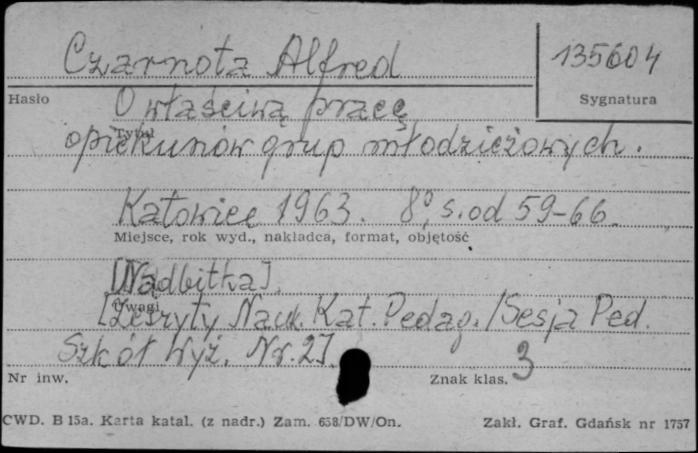 Czarnota Alfred
135604
Hasło
Sygnatura
O właściwą pracę
Tytuł
opiekunów grup młodzieżowych.
Katowice 1963. 8°, s. od 59-66.
Miejsce, rok wyd., nakładca, format, objętość
[Nadbitka].
Uwagi
[Zeszyty Nauk. Kat. Pedag. /Sesja Ped.
Szkół Wyż. Nr. 2].
3
Nr inw.
Znak klas.
CWD. B 15a. Karta katal. (z nadr.) Zam. 658/DW/On.
Zakł. Graf. Gdańsk nr 1757